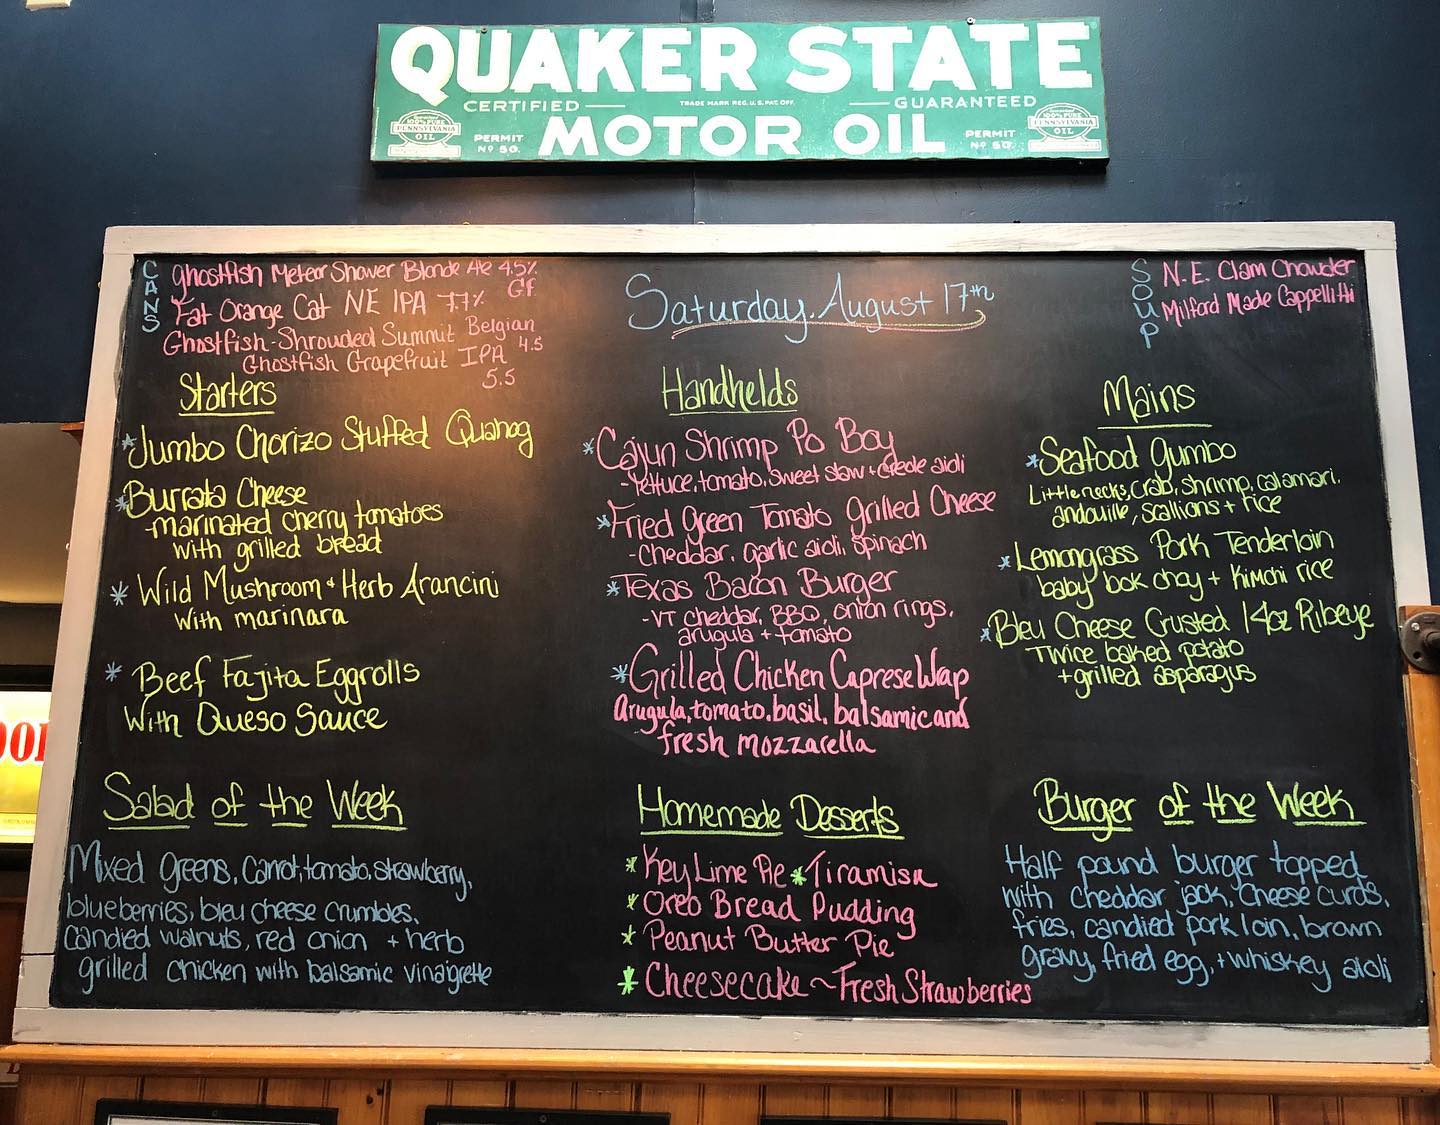 QUAKER STATE
CERTIFIED — TRADE MARK REG. U.S. PAT. OFF. — GUARANTEED
MOTOR OIL
100% PURE
PENNSYLVANIA
OIL
PERMIT
Nº 50.
PERMIT
Nº 50.
100% PURE
PENNSYLVANIA
OIL
CANS
Ghostfish Meteor Shower Blonde Ale 4.5% GF
Fat Orange Cat NE IPA 7.7%
Ghostfish-Shrouded Summit Belgian 4.5
Ghostfish Grapefruit IPA 5.5
Saturday, August 17th
SOUP
N.E. Clam Chowder
Milford Made Cappelitti
Starters
* Jumbo Chorizo Stuffed Quahog
* Burrata Cheese
-marinated cherry tomatoes
with grilled bread
* Wild Mushroom + Herb Arancini
with marinara
* Beef Fajita Eggrolls
With Queso Sauce
Handhelds
* Cajun Shrimp Po Boy
-lettuce, tomato, sweet slaw + creole aioli
* Fried Green Tomato Grilled Cheese
-cheddar, garlic aioli, spinach
* Texas Bacon Burger
-VT cheddar, BBQ, onion rings,
arugula + tomato
* Grilled Chicken Caprese Wrap
Arugula, tomato, basil, balsamic and
fresh mozzarella
Mains
* Seafood Gumbo
Littlenecks, crab, shrimp, calamari,
andouille, scallions + rice
* Lemongrass Pork Tenderloin
baby bok choy + Kimchi rice
* Bleu Cheese Crusted 14oz Ribeye
Twice baked potato
+ grilled asparagus
Salad of the Week
Mixed greens, carrot, tomato, strawberry,
blueberries, bleu cheese crumbles,
candied walnuts, red onion + herb
grilled chicken with balsamic vinaigrette
Homemade Desserts
* Key Lime Pie * Tiramisu
* Oreo Bread Pudding
* Peanut Butter Pie
* Cheesecake ~ Fresh Strawberries
Burger of the Week
Half pound burger topped
with cheddar jack, cheese curds,
fries, candied pork loin, brown
gravy, fried egg, + whiskey aioli